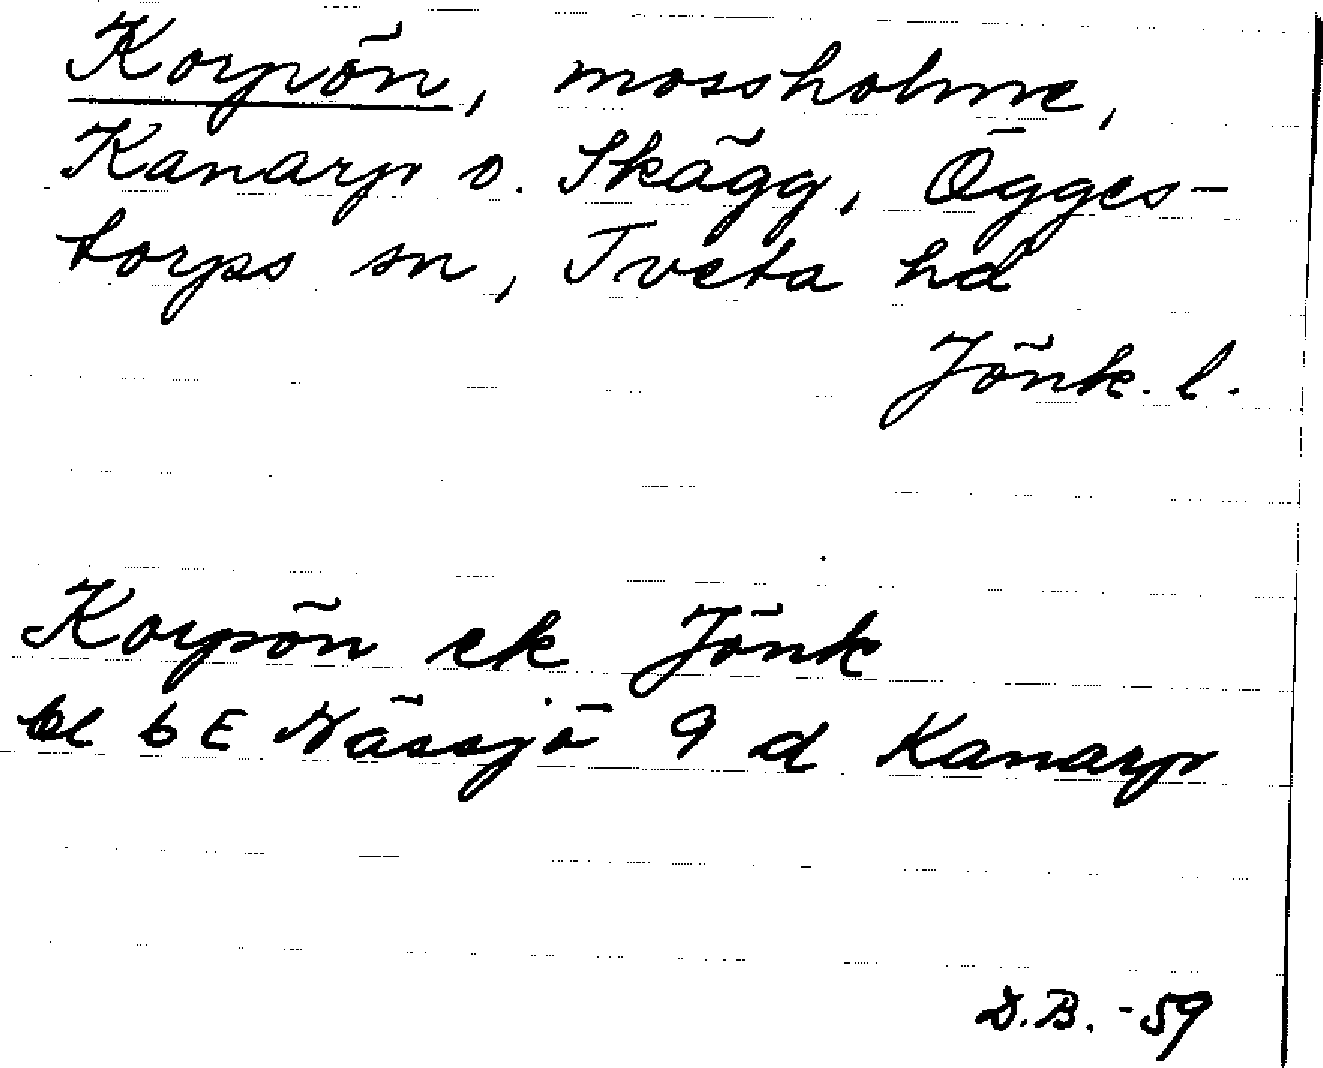 Korpön, mossholme,
Kanarp o. Skägg, Ögges-
torps sn, Tveta hd
Jönk. l.
Korpön ek Jönk
bl 6 E Nässjö 9 d Kanarp
D.B. -59